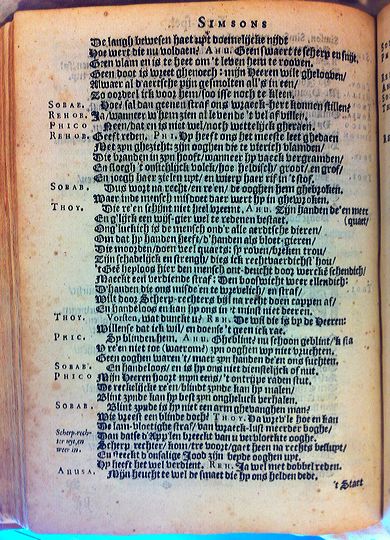 SIMSONS
De langh bewesen haet upt doemelijcke nijdt
Hoe wert die nu voldaen? AHU. Geen swaert te scherp en snijt,
Geen vlam en is te heet om 't leven hem te rooven.
Geen doot is wreet ghenoech: mijn Heeren wilt ghelooven/
Alwaer al d'aertsche pijn gesmolten all's in een/
Zo oordeel ick voor hem/ soo isse noch te kleen.
SOBAB. Hoe sal dan geenen straf ons wraeck-hert konnen stillen?
REHOB. Ja/ wanneer w'hem zien al levende 't vel af villen.
PHICO Neen/ dat en is niet wel/ noch wettelijck gheraen.
REHOB. Geeft reden. PHI. Hy heeft ons het meeste leet ghedaen
Met zyn ghezicht: zijn ooghen die te vierich vlamden/
Die branden in zyn hooft/ wanneer hy vaeck vergramden/
En sloegh 't onsichlijck volck/ hoe heldisch/ groot/ en grof/
En joegh haer zielen uyt/ en wierp haer rif in 't stof.
SOBAB. Dus wort na recht en re'en/ de ooghen hem ghebroken.
Waer in de mensch misdoet daer wert hy in ghewroken.
THOY. Die re'en schijnt niet heel vreemt, AHU. Zijn handen de'en meer
En g'lijck een wijs-gier wel te redenen bestaet, (quaet/
Ong'luckich is de mensch ond'r alle aerdtsche dieren/
Om dat hy handen heeft/ d'handen als bloet-gieren/
Die moorden/ doen veel quaets: sy roven/ breken trou/
Zijn schadelijck en strengh/ dies ick rechtvaerdichs' hou/
't Geé heploog hier den mensch ont-deucht door wercke schendich/
Maeckt een verdiende straf: Den booswicht weer ellendich:
D'handen die misdoen te wreveelich/ en straf/
Wilt door Scherp-rechters bijl na recht doen cappen af/
En handeloos en kan hy ons in 't minst niet deeren.
THOY. Vorsten, wat dunckt u? REH. De wil die is by de Heeren:
Willense dat ick wil/ en doense 't geen ick rae.
PHIC. Sy blinden hem. AHU. Gheblint! nu schoon geblint/ 'k sla
U re'en niet toe (waerom?) zyn ooghen wy niet vruchten.
Geen ooghen waren 't/ maer zyn handen de'en ons suchten.
SOBAB. En handeloos/ en is hy ons niet dienstelijck of nut.
PHICO Mijn Heeren hoort mijn eens/ 't ontrype raden stut.
De reckelijcke te en/ blindt zynde kan hy malen/
Blint zynde kan hy best zyn ongheluck verhalen.
SOBAB. Blint zynde is hy niet een arm ghevanghen man/
Wie vreest een blinde doch? THOY. Daer ved're hoe en kan
De lam-vloetighe straf/ van wraeck-lust meerder boghe/
Dan datse d'App'len breeckt van u vervloerkte ooghe.
Scherp-rechter uyt, en weer in. Scherp rechter/ kom/ tre voort/ gaet heen na rechts besluyt/
En steeckt d'onsalige Jood zijn beyde ooghen uyt.
Hy heeft het wel verdient. REH. Ja wel met dobbel reden.
AHUSA. Mijn heucht te wel de smaet die hy ons helden dede.
't Staet